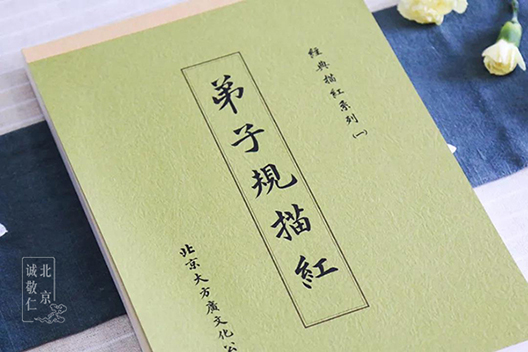 經典描紅系列(一)
弟子規描紅
北京大方廣文化公
北京
誠敬仁